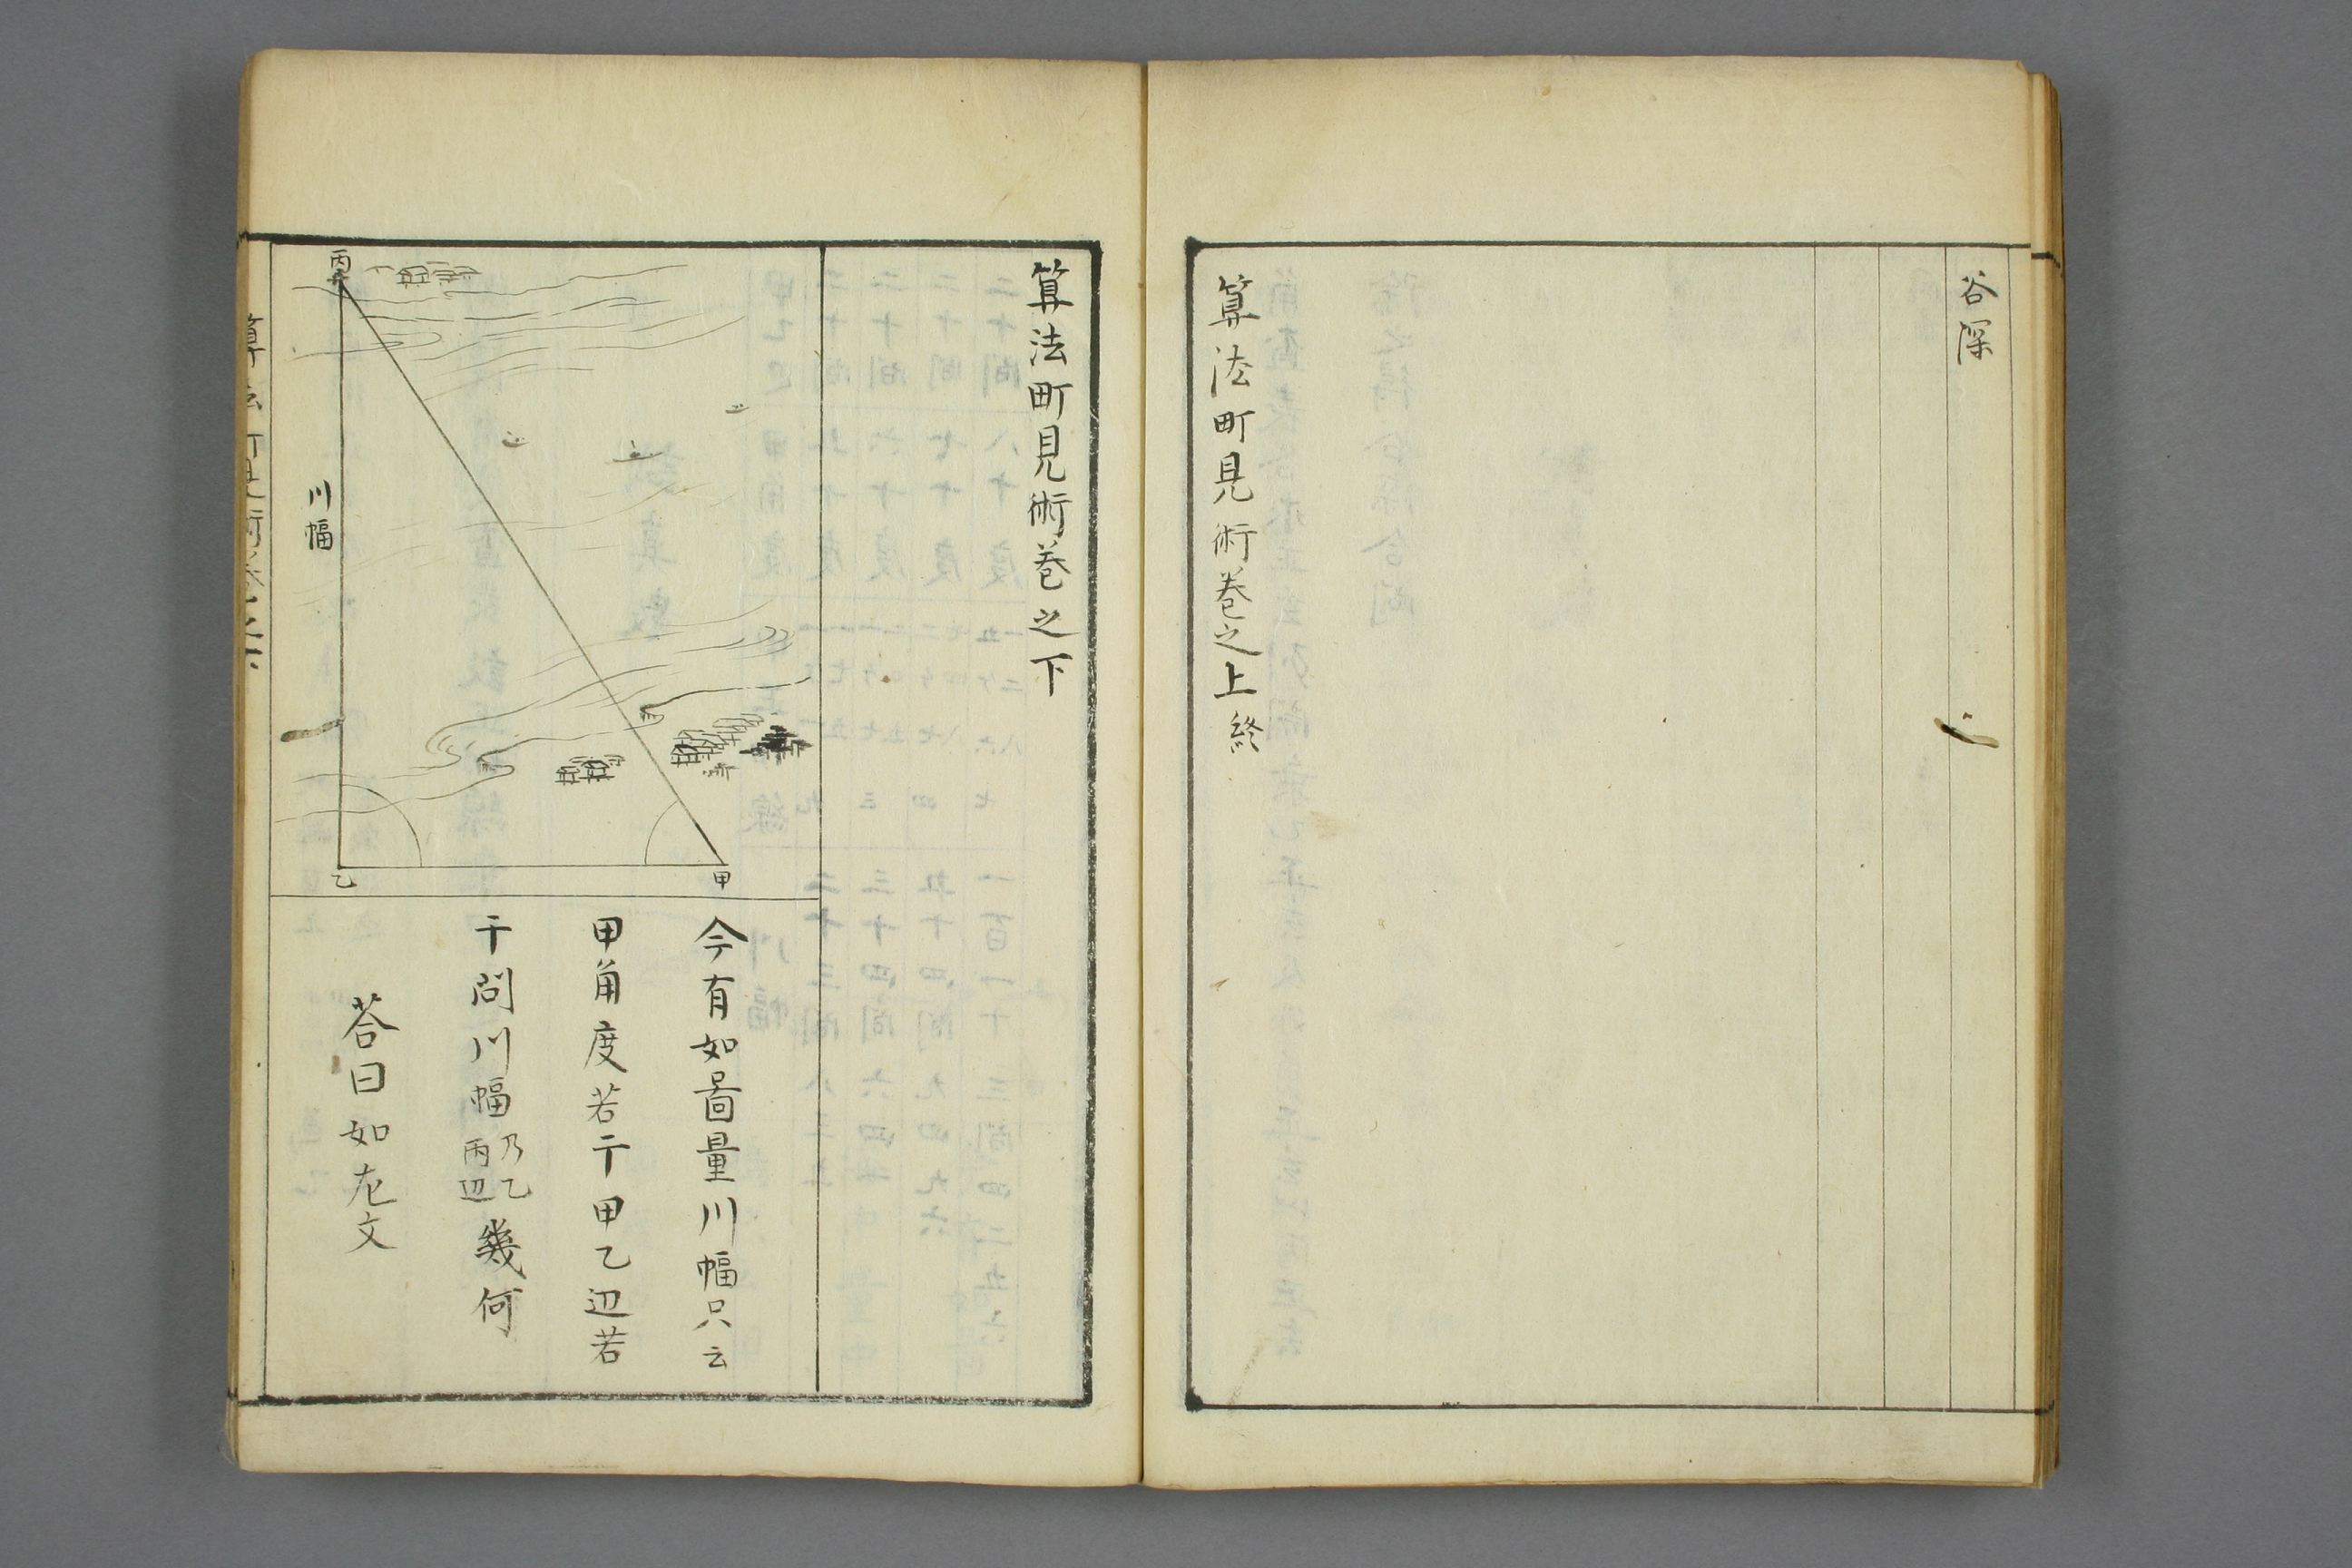 谷深
算法町見術巻之上終
算法町見術巻之下
丙
川幅
乙
甲
今有如啚量川幅只云
甲角度若干甲乙辺若
干問川幅乃乙丙辺幾何
荅曰如左文
算法町見術巻之下